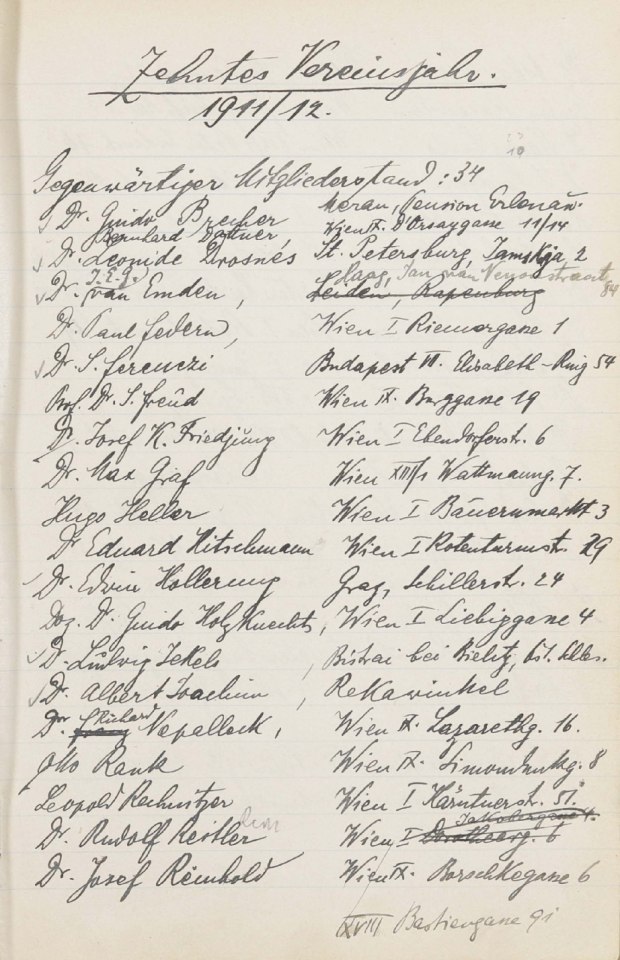 Zehntes Vereinsjahr.
1911/12.
19
Gegenwärtiger Mitgliederstand: 34
Dr. Guido Brecher, Meran, Pension Erlenau.
Bernhard Dattner, Wien IX. D'Orsaygasse 11/14
Dr. Leonide Drosnés St. Petersburg, 2
J. E. G. Haag, Jan van 84
Dr. van Emden, Leiden, Rapenburg
Dr. Paul Federn, Wien I Riemergasse 1
Dr. S. Ferenczi Budapest VII. Elisabeth-Ring 54
Prof. Dr. S. Freud Wien IX. Berggasse 19
Dr. Josef K. Friedjung Wien I Ebendorferstr. 6
Dr. Max Graf Wien XIII/1 Wattmanng. 7.
Hugo Heller Wien I Bauernmarkt 3
Dr Eduard Hitschmann Wien I Rotenturmstr. 29
Dr. Edwin Hollerung Graz, Schillerstr. 24
Doz. Dr. Guido Holzknecht, Wien I Liebiggasse 4
Dr. Ludwig Jekels, Bistrai bei Bielitz, öst. Schles.
Dr. Albert Joachim, Rekawinkel
Dr. Richard Nepalleck, Wien IX. Lazarethg. 16.
Otto Rank Wien IX. Simondenkg. 8
Leopold Rechnitzer Wien I Kärntnerst. 51.
Jakobergasse 4.
Dr. Rudolf Reitler Wien I Dorotheerg. 6
Dr. Josef Reinhold Wien IX. Borschkegasse 6
XVIII Bastiengasse 91